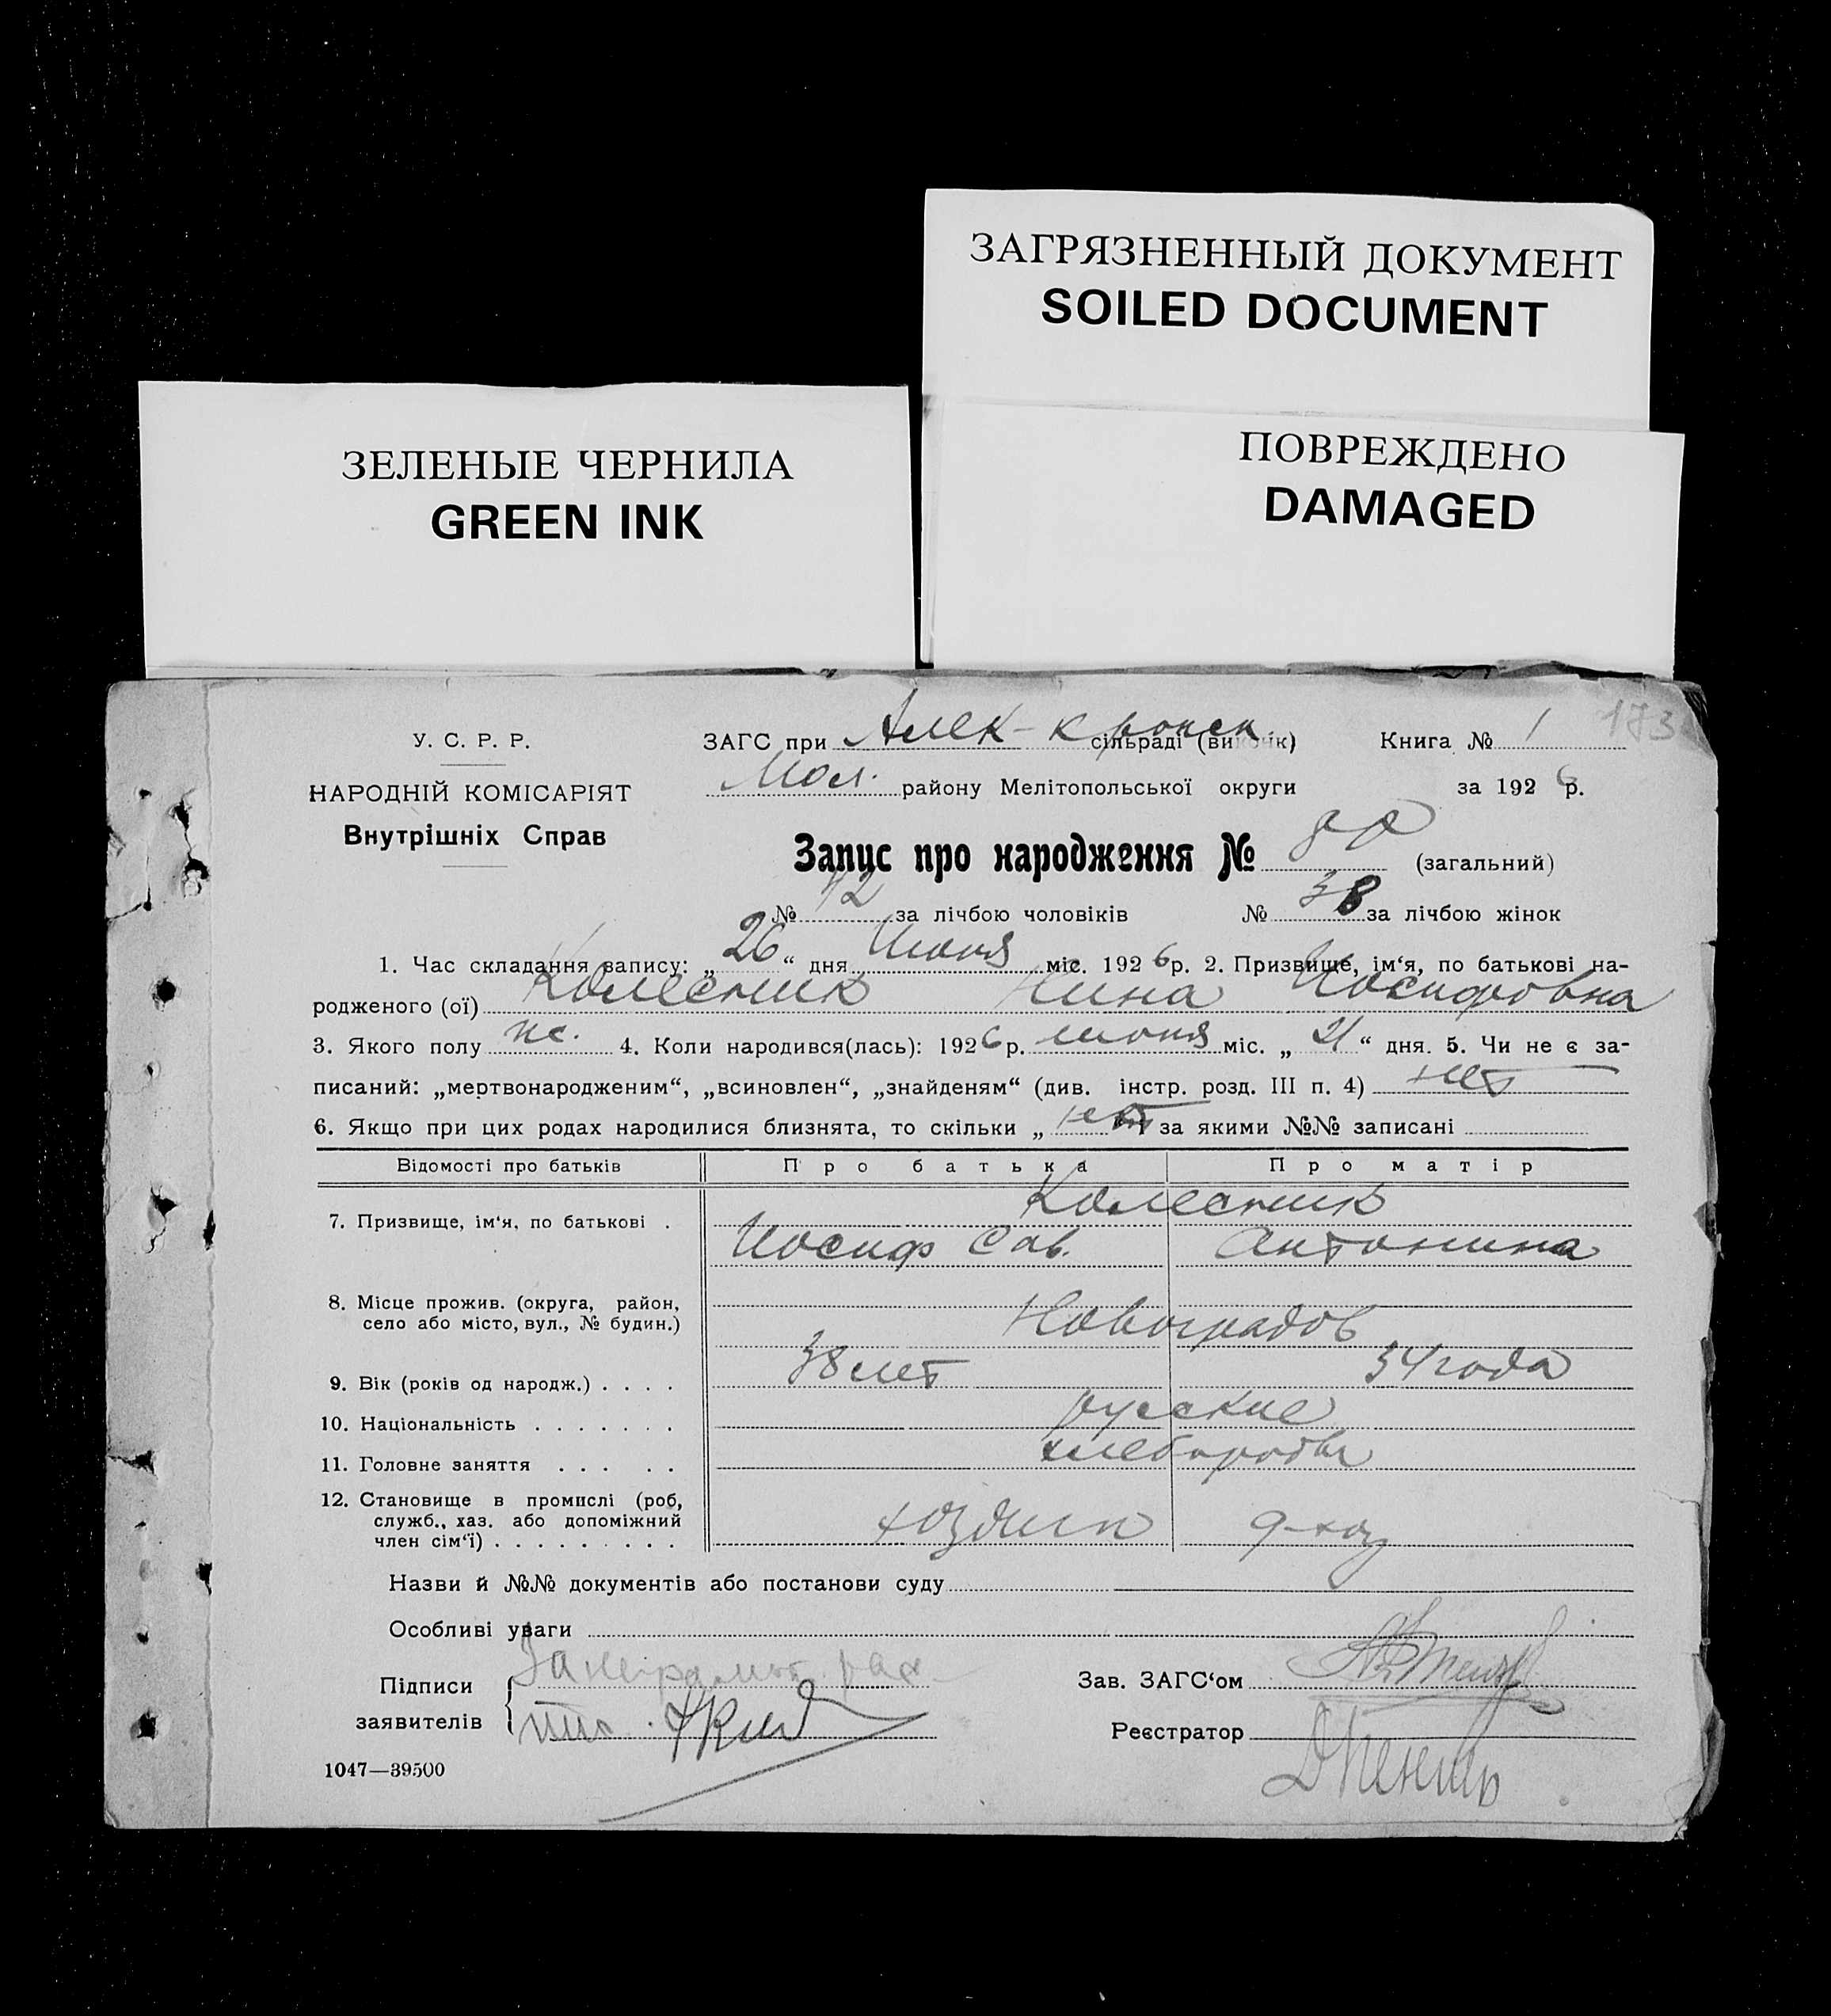 ЗАГРЯЗНЕННЫЙ ДОКУМЕНТ
SOILED DOCUMENT
ЗЕЛЕНЫЕ ЧЕРНИЛА
GREEN INK
ПОВРЕЖДЕНО
DAMAGED
173
У. С. Р. Р.
НАРОДНІЙ КОМІСАРІЯТ
Внутрішніх Справ
ЗАГС при Алек- сільраді (виконк) Книга № 1
Мол. району Мелітопольської округи за 1926р.
Запис про народження № (загальний)
№ 42 за лічбою чоловіків № 38 за лічбою жінок
1. Час складання запису: „26“ дня Июня міс. 1926р. 2. Призвище, ім‘я, по батькові на-
родженого (ої) Колесник Нина Иосифовна
3. Якого полу жс. 4. Коли народився(лась): 1926р. июня міс. „21“ дня. 5. Чи не є за-
писаний: „мертвонародженим“, „всиновлен“, „знайденям“ (див. інстр. розд. III п. 4) нет
6. Якщо при цих родах народилися близнята, то скільки „ нет за якими №№ записані
Відомості про батьків Про батька Про матір
7. Призвище, ім‘я, по батькові . Колесник
Иосиф Сав. Антонина
8. Місце прожив. (округа, район,
село або місто, вул., № будин.) Новоградов
9. Вік (років од народж.) . . . . 38 лет 34 года
10. Національність . . . . . . . русские
11. Головне заняття . . . . . хлебороды
12. Становище в промислі (роб,
служб., хаз. або допоміжний
член сім‘ї) . . . . . . . . . хоздин 9-хоз
Назви й №№ документів або постанови суду
Особливі уваги
Підписи
заявителів
За неграмот. рас
Зав. ЗАГС‘ом
Реєстратор
1047—39500